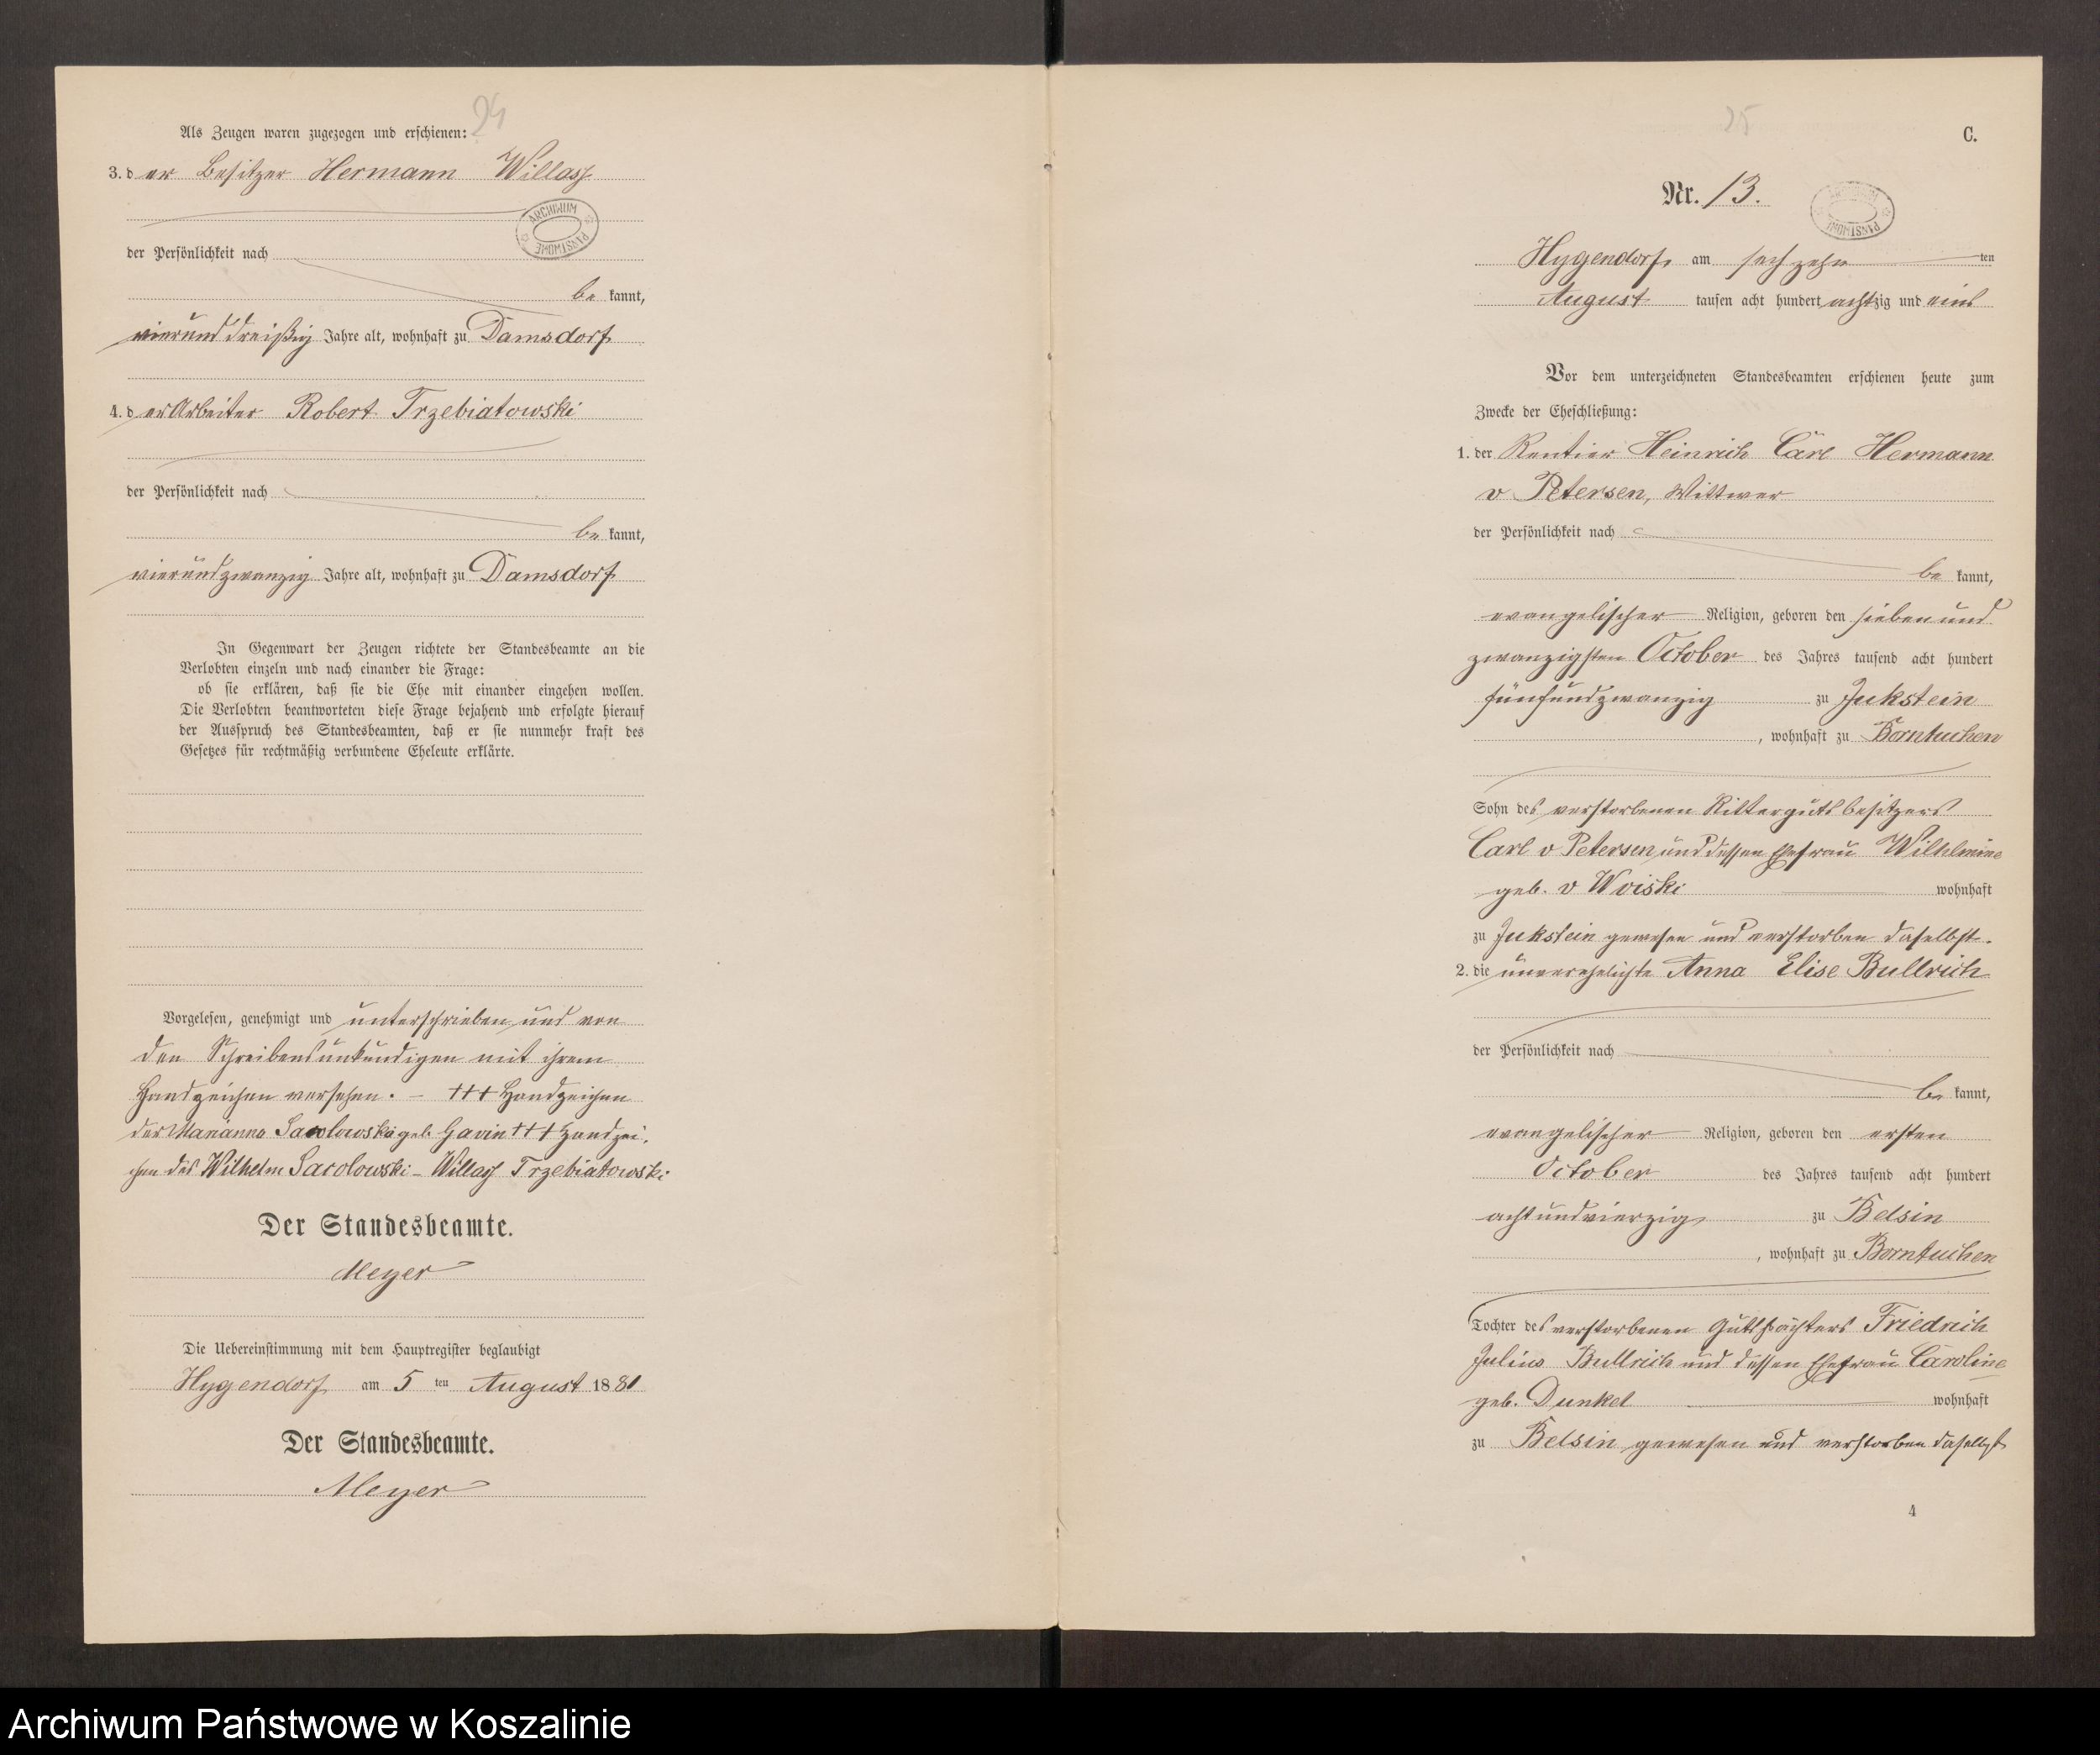 24
Als Zeugen waren zugezogen und erschienen:
3. der Besitzer Hermann Willass
ARCHIWUM PAŃSTWOWE
der Persönlichkeit nach
bekannt,
vierunddreißig Jahre alt, wohnhaft zu Damsdorf
4. der Arbeiter Robert Trzebiatowski
der Persönlichkeit nach
bekannt,
vierundzwanzig Jahre alt, wohnhaft zu Damsdorf
In Gegenwart der Zeugen richtete der Standesbeamte an die
Verlobten einzeln und nach einander die Frage:
ob sie erklären, daß sie die Ehe mit einander eingehen wollen.
Die Verlobten beantworteten diese Frage bejahend und erfolgte hierauf
der Ausspruch des Standesbeamten, daß er sie nunmehr kraft des
Gesetzes für rechtmäßig verbundene Eheleute erklärte.
Vorgelesen, genehmigt und unterschrieben und von
den Schreibensunkundigen mit ihrem
Handzeichen versehen. – +++ Handzeichen
der Marianna geb. Gavin +++ Handzei-
chen des Wilhelm Sacolowski – Willass Trzebiatowski
Der Standesbeamte.
Meyer
Die Uebereinstimmung mit dem Hauptregister beglaubigt
Hygendorf am 5ten August 1881
Der Standesbeamte.
Meyer
25
C.
Nr. 13.
ARCHIWUM PAŃSTWOWE
Hygendorf am sechzehnten
August tausen acht hundert achtzig und eins
Vor dem unterzeichneten Standesbeamten erschienen heute zum
Zwecke der Eheschließung:
1. der Rentier Heinrich Carl Hermann
v Petersen, Wittwer
der Persönlichkeit nach
bekannt,
evangelischer Religion, geboren den sieben und
zwanzigsten October des Jahres tausend acht hundert
fünfundzwanzig zu Jukstein
, wohnhaft zu Borntuchen
Sohn des verstorbenen Rittergutsbesitzers
Carl v Petersen und dessen Ehefrau Wilhelmine
geb. v Woiski wohnhaft
zu Jukstein gewesen und verstorben daselbst.
2. die unverehelichte Anna Elise Bullrich
der Persönlichkeit nach
bekannt,
evangelischer Religion, geboren den ersten
October des Jahres tausend acht hundert
achtundvierzig zu Belsin
, wohnhaft zu Borntuchen
Tochter des verstorbenen Gutspächters Friedrich
Julius Bullrich und dessen Ehefrau Caroline
geb. Dunkel wohnhaft
zu Belsin gewesen und verstorben daselbst
4
Archiwum Państwowe w Koszalinie